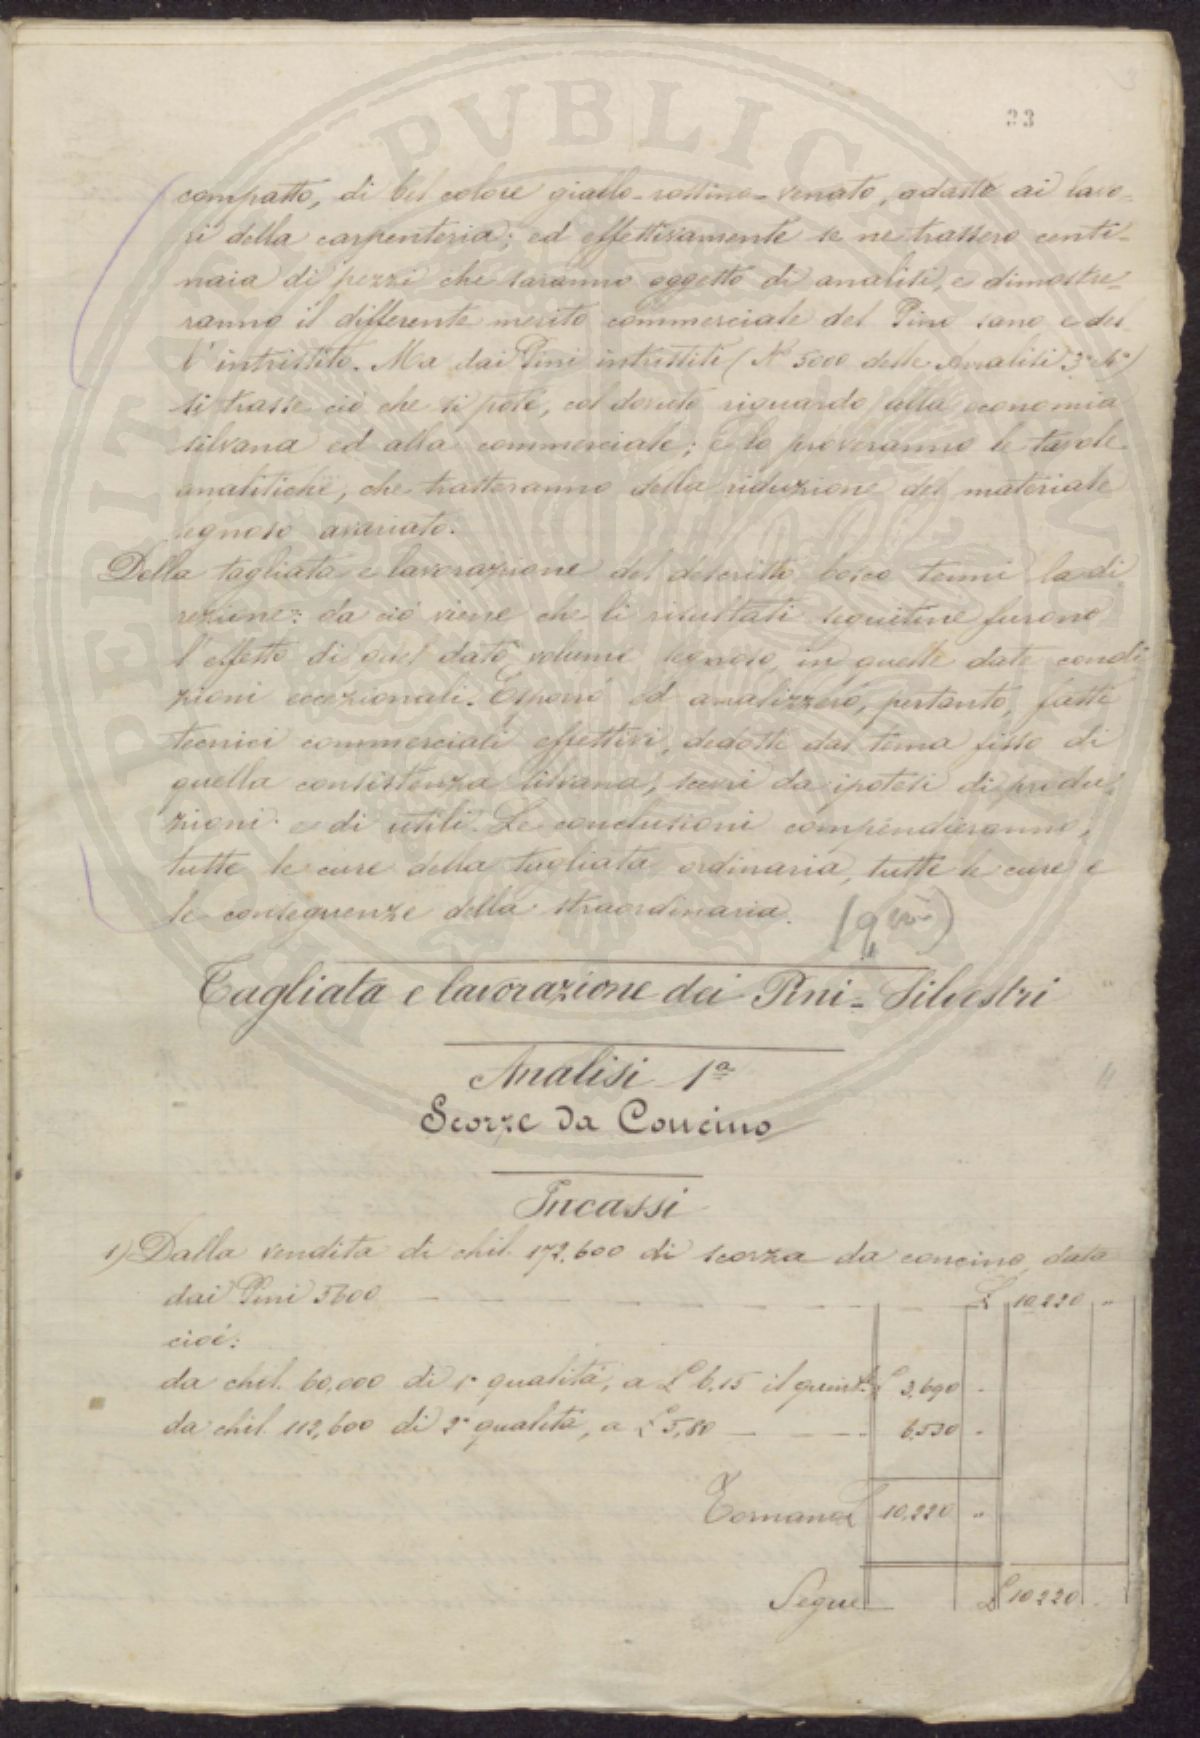 33
compatto, di bel colore giallo-rossino-venato, adatto ai lavo-
ri della carpenteria; ed effettivamente se ne trassero centi-
naia di pezzi che saranno oggetto di analisi, e dimostre-
ranno il differente merito commerciale del Pino sano e del
l'intristito. Ma dai Pini intristiti (N° 5000 delle Analisi 3ª
si trasse ciò che si potè, col dovuto riguardo alla economia
silvana ed alla commerciale; e lo proveranno le tavole
analitiche, che tratteranno della riduzione del materiale
legnoso avariato.
Della tagliata e lavorazione del descritto bosco tenni la di-
rezione: da ciò viene che li risultati seguitine furono
l'effetto di quel dato volume legnoso in quelle date condi
zioni eccezionali. Esporrò ed analizzerò, pertanto, fatti
tecnici commerciali effettivi, dedotti dal tema fisso di
quella consistenza silvana, scevri da ipotesi di produ-
zioni e di utili. Le conclusioni compendieranno,
tutte le cure della tagliata ordinaria, tutte le cure e
le conseguenze della straordinaria.
Tagliata e lavorazione dei Pini-Silvestri
Analisi 1ª
Scorze da Concino
Incassi
1) Dalla vendita di chil. 172.600 di scorza da concino data
dai Pini 5600 £ 10,220 "
cioè:
da chil. 60,000 di 1ª qualità, a £ 6.15 il quint. £ 3,690 -
da chil. 112,600 di 2ª qualità, a £ 5,80 6,530 -
Tornano £ 10,220 "
Segue £ 10220 -